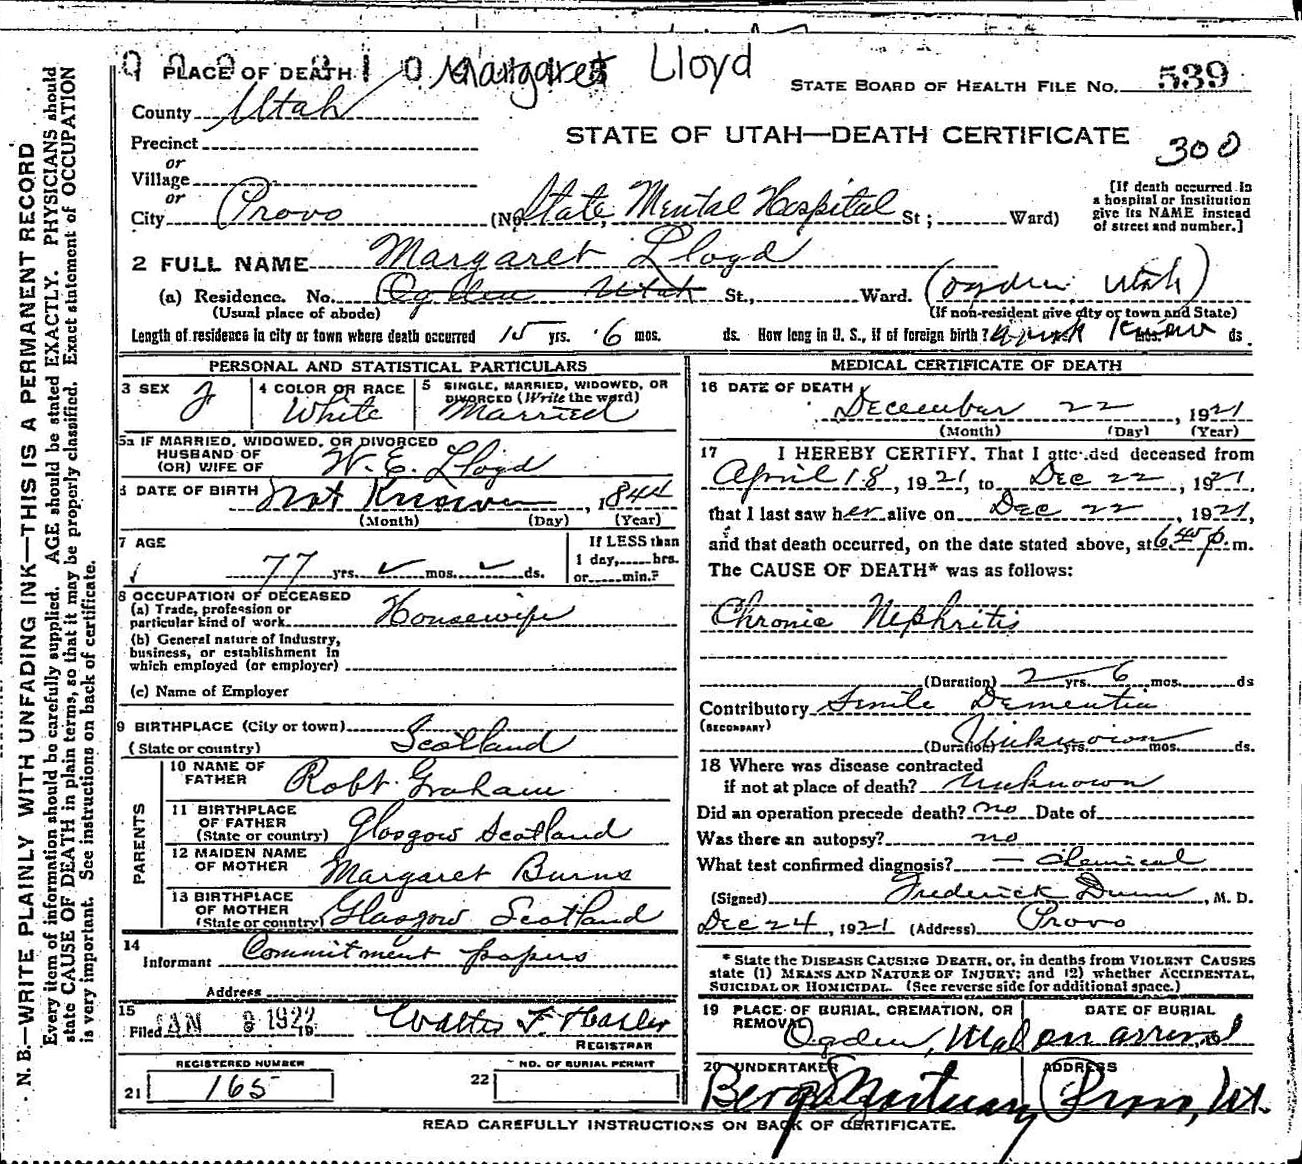 PLACE OF DEATH Margaret Lloyd
STATE BOARD OF HEALTH FILE NO. 539
County Utah
STATE OF UTAH—DEATH CERTIFICATE
300
Precinct
or
Village
or
City Provo (No. State Mental Hospital St; Ward)
[If death occurred in
a hospital or institution
give its NAME instead
of street and number.]
2 FULL NAME Margaret Lloyd
(a) Residence. No. Ogden Utah St., Ward. (Ogden, Utah)
(Usual place of abode) (If non-resident give city or town and State)
Length of residence in city or town where death occurred 15 yrs. 6 mos. ds. How long in U. S., if of foreign birth? Know mos. ds.
PERSONAL AND STATISTICAL PARTICULARS
3 SEX F
4 COLOR OR RACE White
5 SINGLE, MARRIED, WIDOWED, OR
DIVORCED (Write the word)
Married
5a IF MARRIED, WIDOWED, OR DIVORCED
HUSBAND OF
(OR) WIFE OF W. E. Lloyd
6 DATE OF BIRTH Not Known, 1844
(Month) (Day) (Year)
7 AGE
77 yrs. ✓ mos. ✓ ds.
If LESS than
1 day, hrs.
or min.?
8 OCCUPATION OF DECEASED
(a) Trade, profession or
particular kind of work Housewife
(b) General nature of industry,
business, or establishment in
which employed (or employer)
(c) Name of Employer
9 BIRTHPLACE (City or town)
(State or country) Scotland
PARENTS
10 NAME OF
FATHER Robt. Graham
11 BIRTHPLACE
OF FATHER
(State or country) Glasgow Scotland
12 MAIDEN NAME
OF MOTHER Margaret Burns
13 BIRTHPLACE
OF MOTHER
(State or country) Glasgow Scotland
14
Informant Commitment papers
Address
15
Filed JAN 3 1922 19 Walter F. Hasler
REGISTRAR
REGISTERED NUMBER
21 165
NO. OF BURIAL PERMIT
22
MEDICAL CERTIFICATE OF DEATH
16 DATE OF DEATH
December 22, 1921
(Month) (Day) (Year)
17 I HEREBY CERTIFY, That I attended deceased from
April 18, 1921, to Dec 22, 1921,
that I last saw her alive on Dec 22, 1921,
and that death occurred, on the date stated above, at 6 45 p. m.
The CAUSE OF DEATH* was as follows:
Chronic Nephritis
(Duration) 2 yrs. 6 mos. ds
Contributory Senile Dementia
(SECONDARY)
(Duration) Unknown yrs. mos. ds.
18 Where was disease contracted
if not at place of death? Unknown
Did an operation precede death? no Date of
Was there an autopsy? no
What test confirmed diagnosis? — Chemical
(Signed) Frederick Dunn, M. D.
Dec 24, 1921 (Address) Provo
* State the DISEASE CAUSING DEATH, or, in deaths from VIOLENT CAUSES
state (1) MEANS AND NATURE OF INJURY; and (2) whether ACCIDENTAL,
SUICIDAL OR HOMICIDAL. (See reverse side for additional space.)
19 PLACE OF BURIAL, CREMATION, OR
REMOVAL
DATE OF BURIAL
Ogden, on arrival
20 UNDERTAKER
ADDRESS
Berg Mortuary Provo, Ut.
READ CAREFULLY INSTRUCTIONS ON BACK OF CERTIFICATE.
N. B.—WRITE PLAINLY WITH UNFADING INK—THIS IS A PERMANENT RECORD
Every item of information should be carefully supplied. AGE should be stated EXACTLY. PHYSICIANS should
state CAUSE OF DEATH in plain terms, so that it may be properly classified. Exact statement of OCCUPATION
is very important. See instructions on back of certificate.